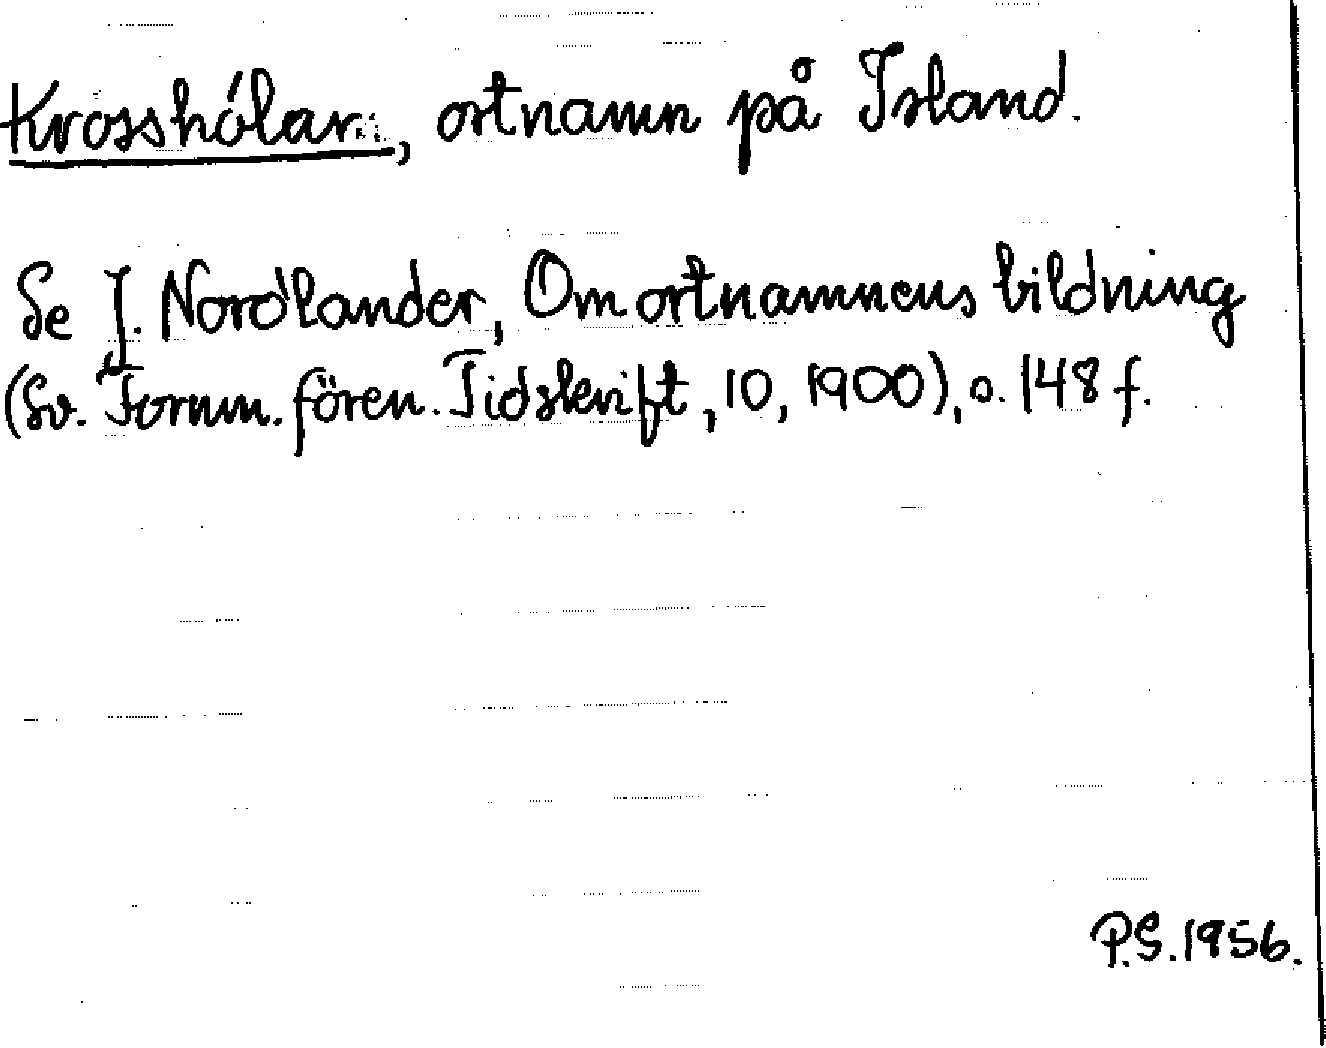 Krosshólar, ortnamn på Island.
Se J. Nordlander, Om ortnamnens bildning
(Sv. Fornm. fören. Tidskrift, 10, 1900), s. 148 f.
P.S. 1956.